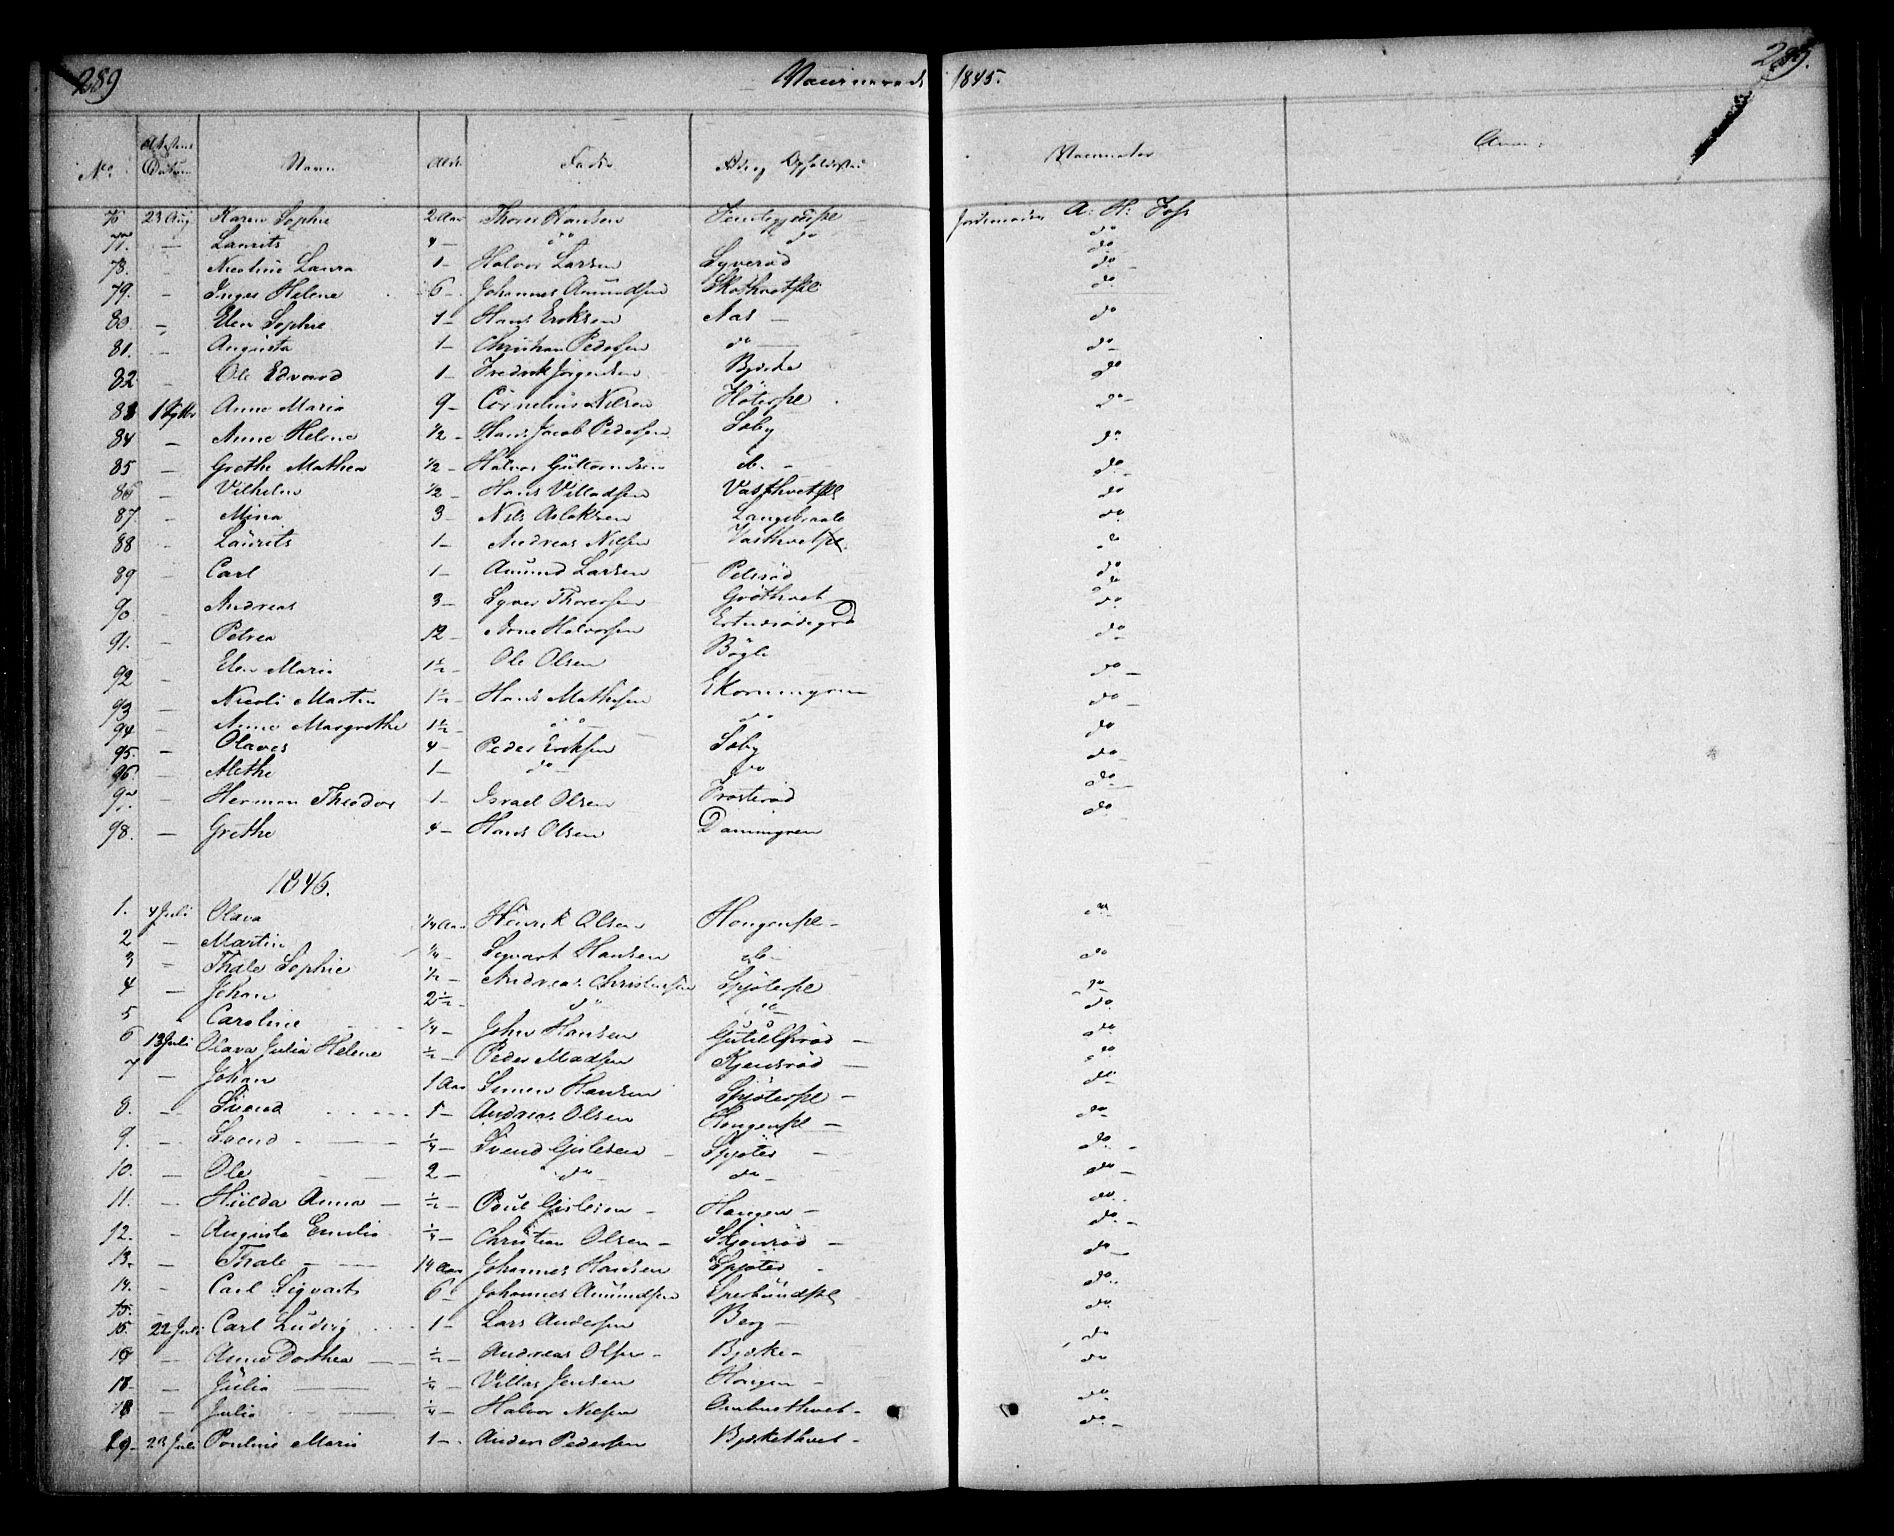 289 Vaccinerede 1845. 289.
No. Attestens Datum Navn Alder Fader Føde og Opholdssted Vaccinator Anm:
76 23 Aug Karen Sophie 2 Aar Thorer Hansen Jordemoder A: H: Joh
77. — Laurits 4 — do do do
78. — Nicoline Laura 1 — Halvor Larsen Syverød do —
79. — Inger Helene 6 — Johannes Amundsen Skothvetpl do
80. — Elen Sophie 1 — Hans Eriksen Aas — do
81. — Augusta 1 — Christian Pedersen do — do
82. — Ole Edvard 1 — Fredrik Jörgensen Bjerke do
83 1 Septbr Anne Maria 9 — Cornelius Nilsen Hötorpl do —
84 — Anne Helene 1/2 — Hans Jacob Pedersen Soby do
85 — Grethe Mathea 1/2 — Halvor Guttormsen do — do
86 — Vilhelm 1/2 — Hans Villadsen Vasthvetpl do
87 — Mina 3 — Nils Aslaksen Langebraate do
88 — Laurits 1 — Andreas Nilsen Vasthvetpl. do
89 — Carl 1 — Amund Larsen Pelsrød do
90 — Andreas 3 — Syver Thoresen Gröthvet do
91. — Petrea 12 — Arne Halvorsen do
92 — Elen Maria 1 1/2 — Ole Olsen Bögli do —
93 — Nicoli Martin 1 1/2 — Hans Mathisen Ekorningren do —
94 — Anne Margrethe 1 1/2 — do — do do
95. — Olaves 4 — Peder Eriksen Soby do —
96. — Alethe 1 — do — do do —
97. — Herman Theodor 1 — Israel Olsen Frosterød do —
98. — Grethe 4 — Hans Olsen Dammyren
1846.
1. 4 Juli Olava 1/4 Aar Henrik Olsen Hougenpl — do
2 — Martin 1/4 — Sigvart Hansen do — do
3 — Thale Sophie 1/2 — Andreas Christensen Spjöterpl do —
4 — Johan 2 1/2 — do do do
5 Caroline 1/4 — John Hansen Gutulfsrød — do
6 13 Juli Olava Julia Helene 1/2 — Peder Madsen Kjensrød — do
7 — Johan 1 Aar Simen Hansen Spjöterpl — do
8. — Svend 5 — Andreas Olsen Hougenpl — do
9. — Svend — 1/4 — Svend Gislesen — Spjöter — do —
10. — Ole 2 — do — do — do —
11. — Hulda Anna — 1/2 — Poul Gislesen — Hougen — do
12. — Augusta Emilie 1/4 — Christian Olsen — Skjönrød — do —
13. — Thale — 14 Aar Johannes Hansen Spjöter do —
14. — Carl Sigvart 6 — Johannes Amundsen Sperbundpl do
15. 22 Juli Carl Ludvig 1 — Lars Andersen Berg — do
16 — Anne Dorthea — 1/2 — Andreas Olsen — Bjerke — do
17 — Julia — 1/4 — Villas Jensen Hougen — do
18 — Julie 1/4 — Halvor Nilsen Ombuethvet — do —
19 — 23 Juli Pouline Marie 1 — Anders Pedersen Bjerkethvet —